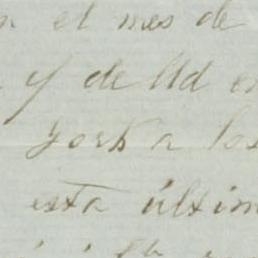 el mes de
y de Ud en
York a los
esta últim